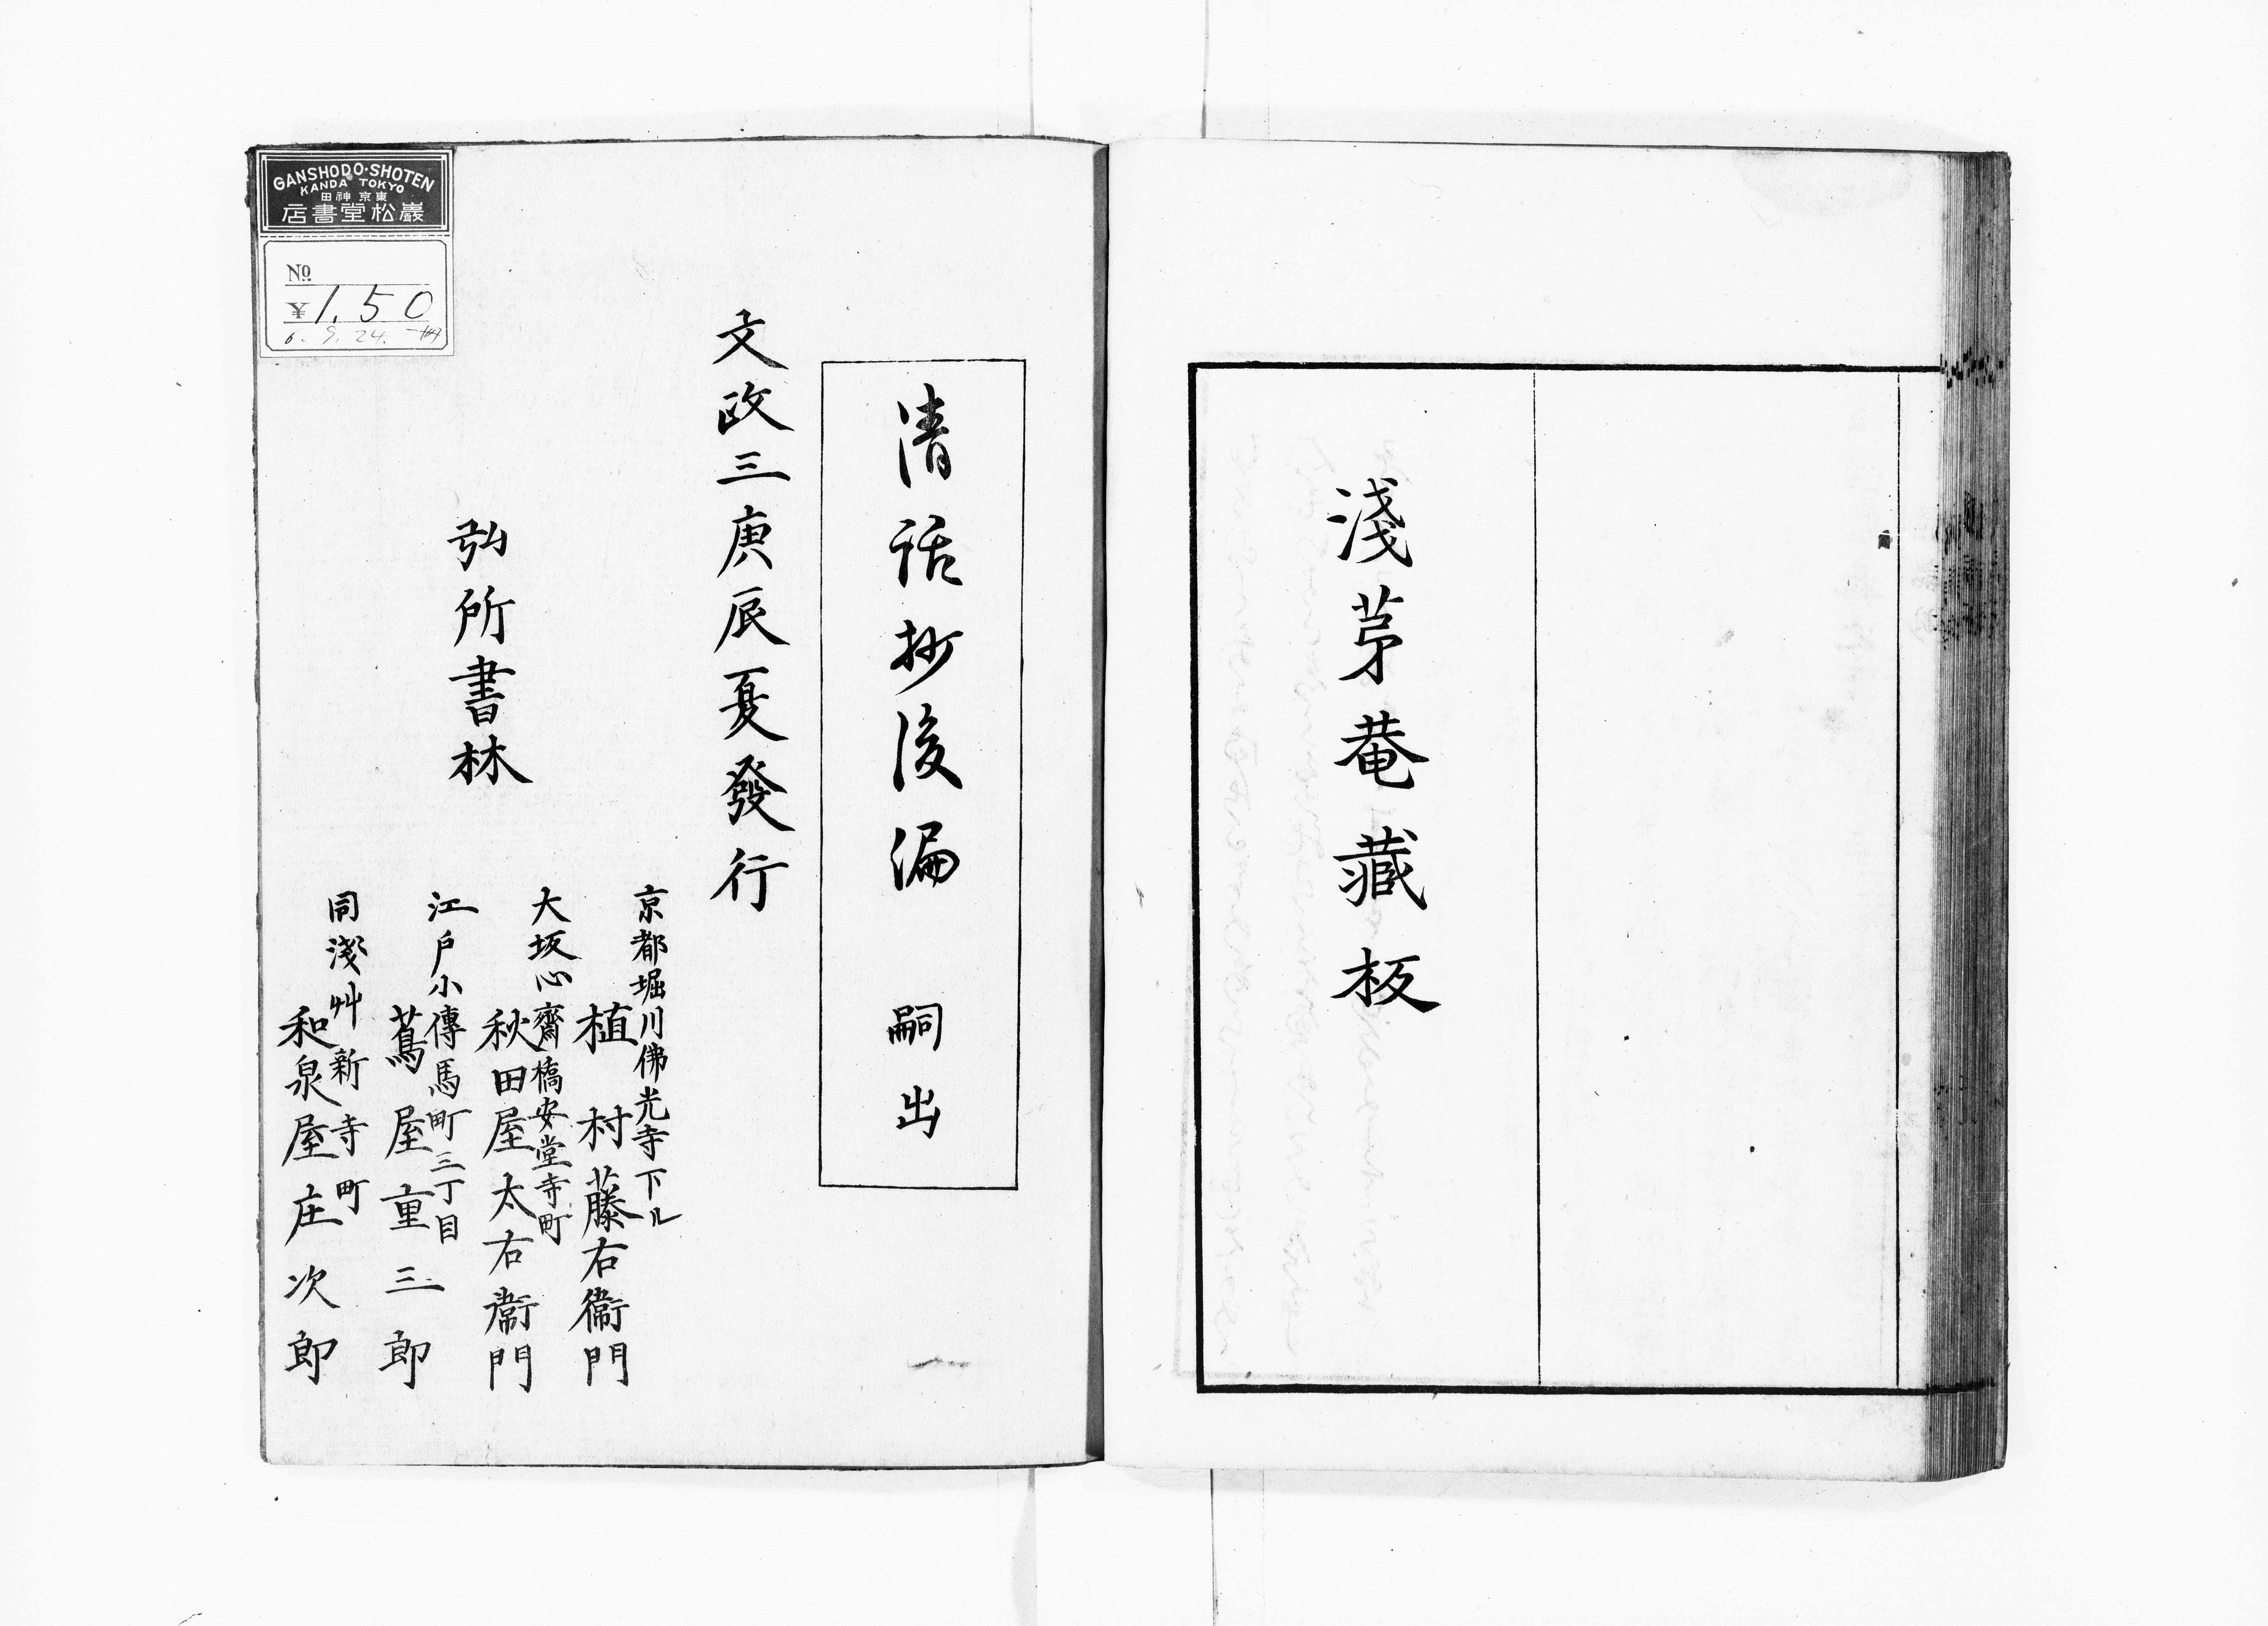 淺茅菴藏板
清話抄後編　嗣出
文政三庚辰夏發行
弘所書林
京都堀川佛光寺下ル
植村藤右衞門
大坂心齋橋安堂寺町
秋田屋太右衞門
江戸小傳馬町三丁目
蔦屋重三郎
同淺艸新寺町
和泉屋庄次郎
GANSHODO・SHOTEN
KANDA TOKYO
東京神田
巖松堂書店
No
¥1.50
6. 9. 24.